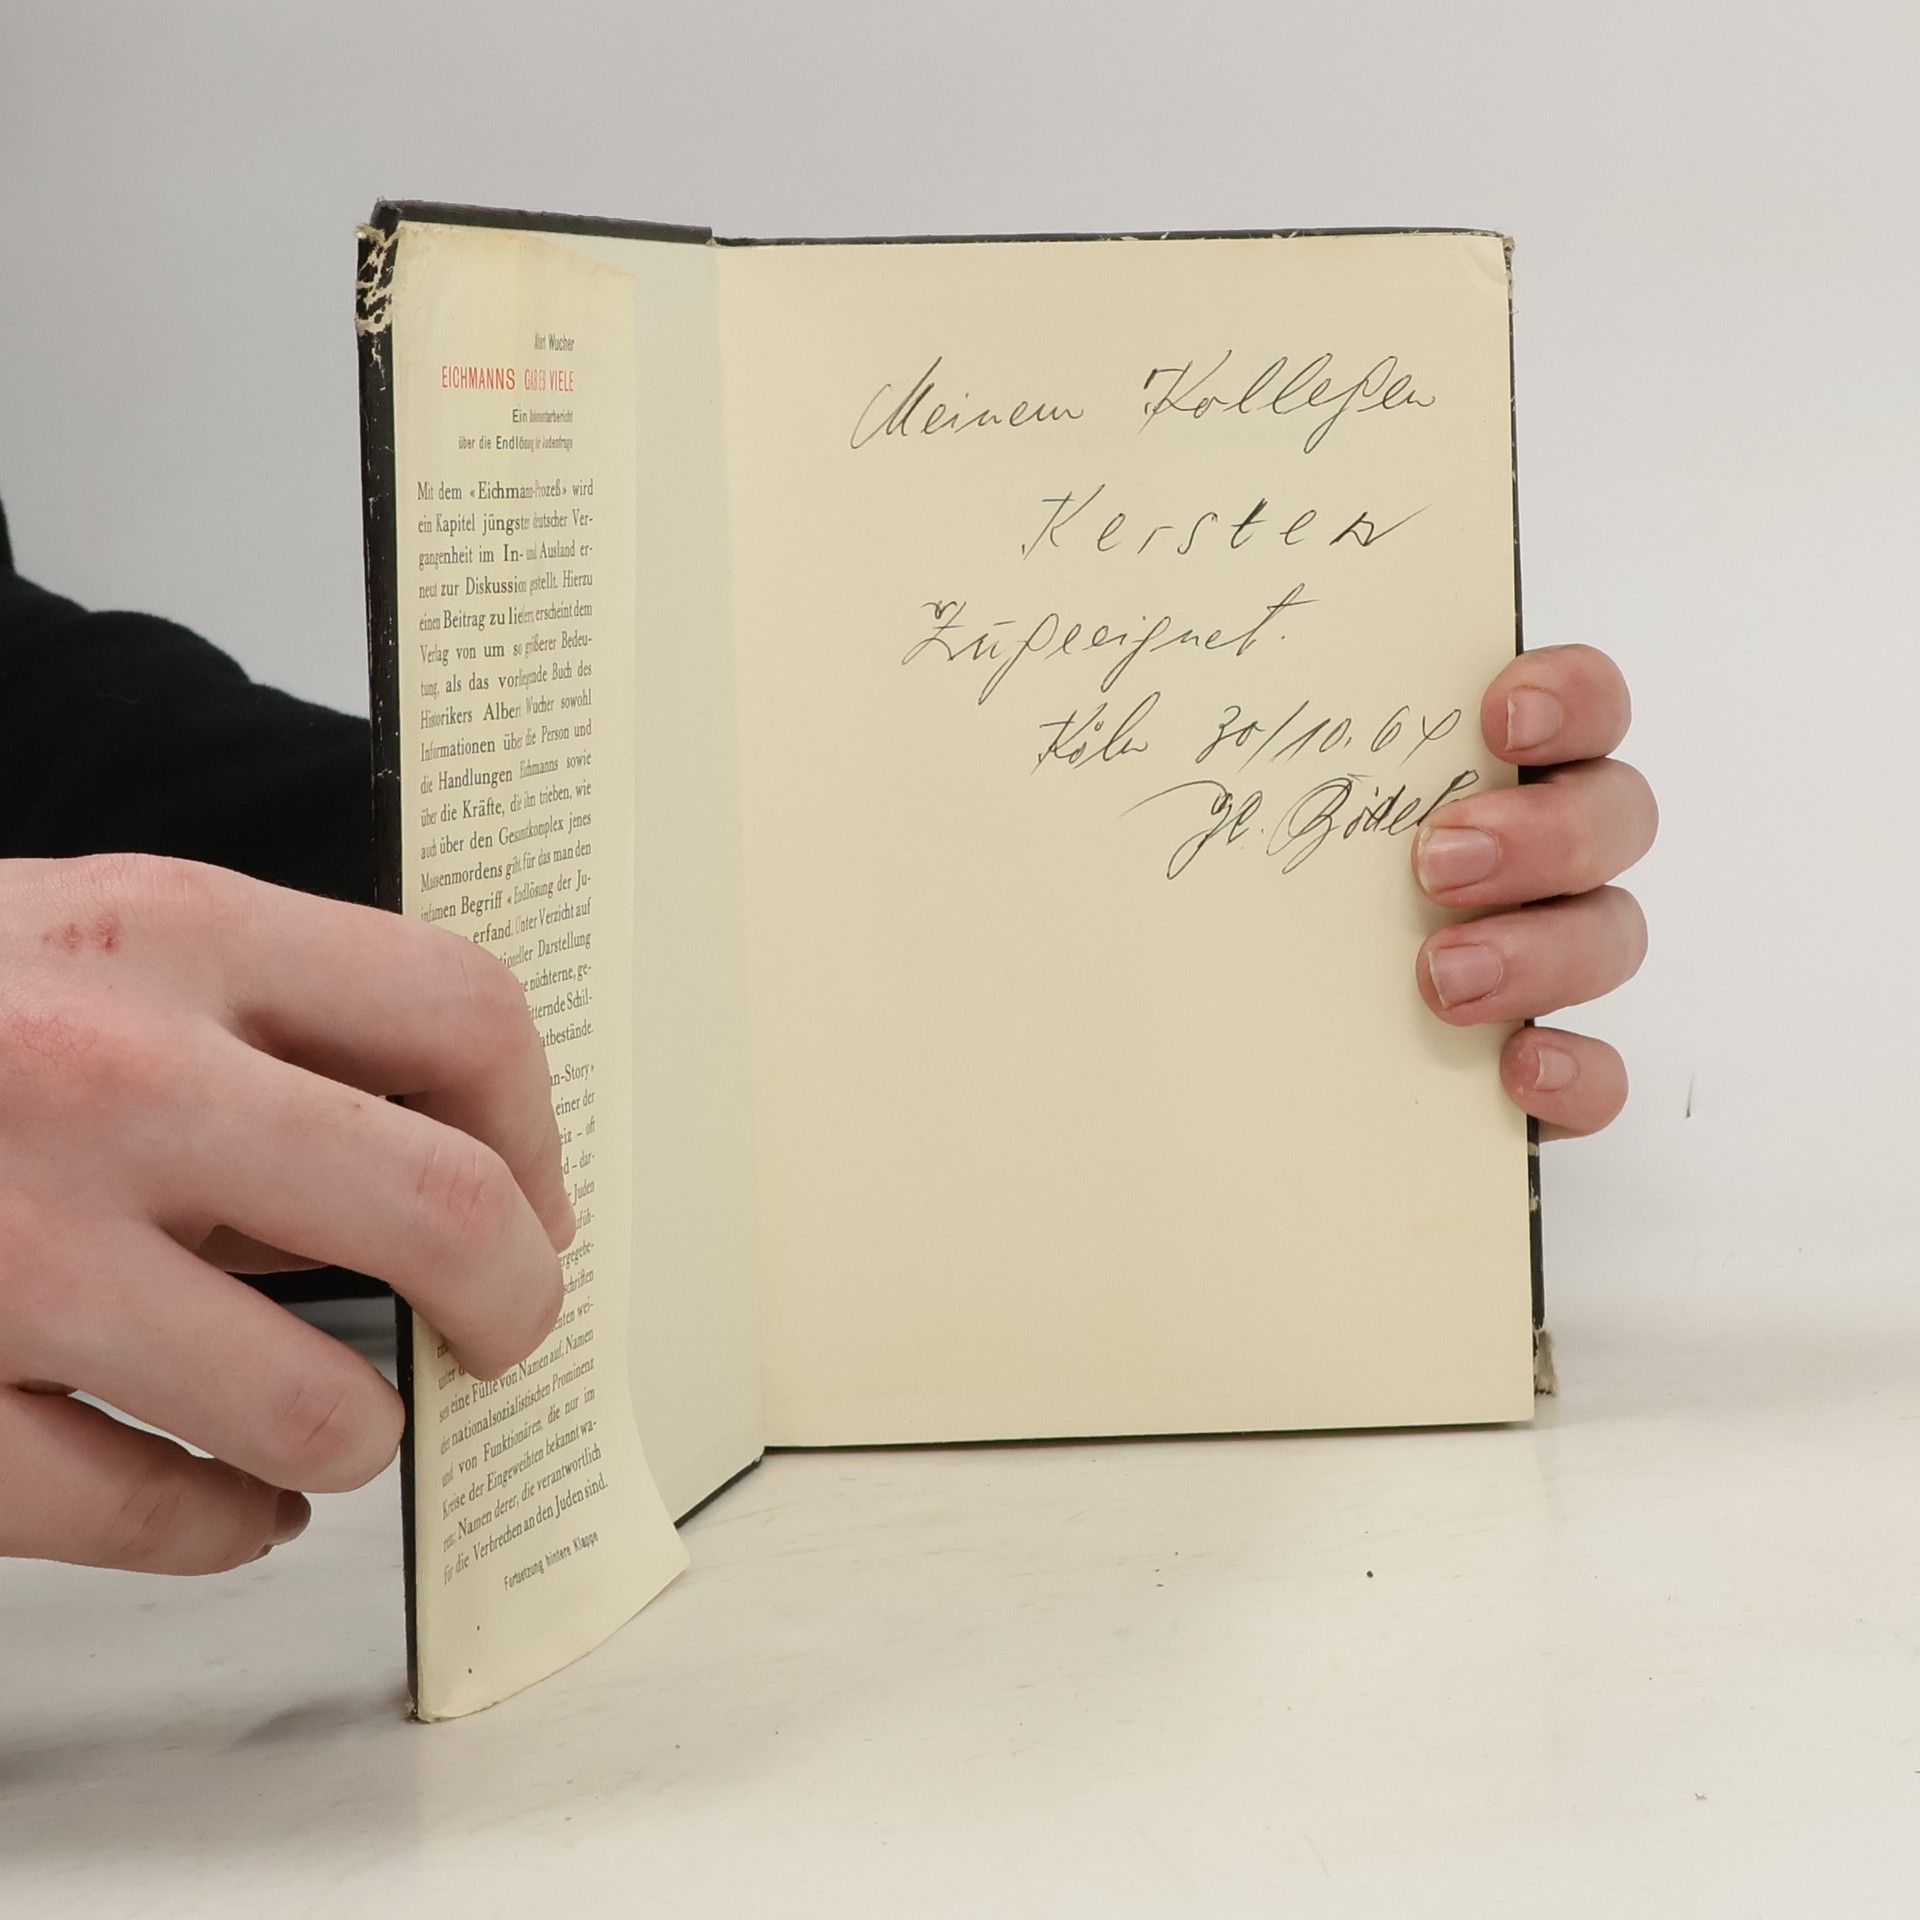 Albert Wucher
EICHMANNS GAB ES VIELE
Ein Dokumentarbericht
über die Endlösung der Judenfrage
Mit dem «Eichmann-Prozeß» wird
ein Kapitel jüngster deutscher Ver-
gangenheit im In- und Ausland er-
neut zur Diskussion gestellt. Hierzu
einen Beitrag zu liefern, erscheint dem
Verlag von um so größerer Bedeu-
tung, als das vorliegende Buch des
Historikers Albert Wucher sowohl
Informationen über die Person und
die Handlungen Eichmanns sowie
über die Kräfte, die ihn trieben, wie
auch über den Gesamtkomplex jenes
Massenmordens gibt, für das man den
infamen Begriff «Endlösung der Ju-
erfand. Unter Verzicht auf
tioneller Darstellung
ne nüchterne, ge-
ütternde Schil-
atbestände.
nn-Story»
einer der
eiz – oft
nd – dar-
r Juden
ufüh-
ergegebe-
schriften
enten wei-
unter
sen eine Fülle von Namen auf, Namen
der nationalsozialistischen Prominenz
und von Funktionären, die nur im
Kreise der Eingeweihten bekannt wa-
ren: Namen derer, die verantwortlich
für die Verbrechen an den Juden sind.
Fortsetzung hintere Klappe
Meinem Kollegen
Kersten
Zugeeignet.
Köln 30/10. 64